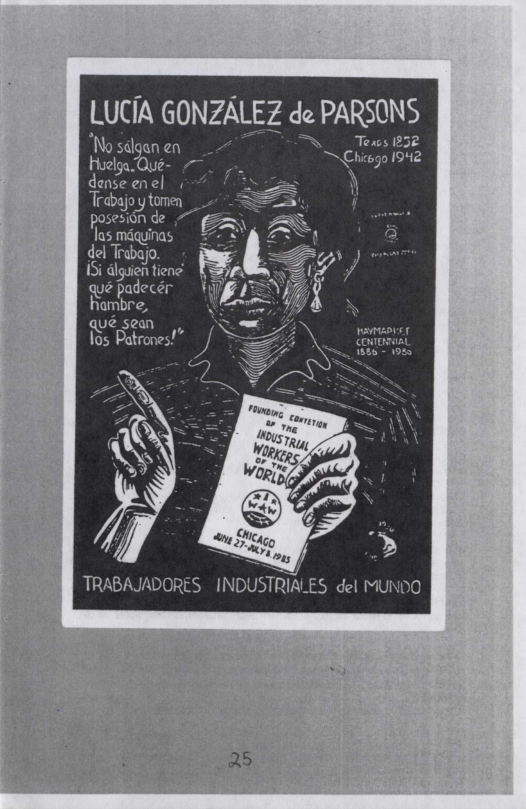 LUCÍA GONZÁLEZ de PARSONS
Texas 1852
Chicago 1942
"No sálgan en
Huelga. Qué-
dense en el
Trabajo y tomen
posesión de
las máquinas
del Trabajo.
¡Si álguien tiene
qué padecér
hambre,
qué sean
los Patrones!"
HAYMARKET
CENTENNIAL
1886 - 1986
FOUNDING CONVETION
OF THE
INDUSTRIAL
WORKERS
OF THE
WORLD
I
W W
CHICAGO
JUNE 27-JULY 8, 1985
TRABAJADORES INDUSTRIALES del MUNDO
25